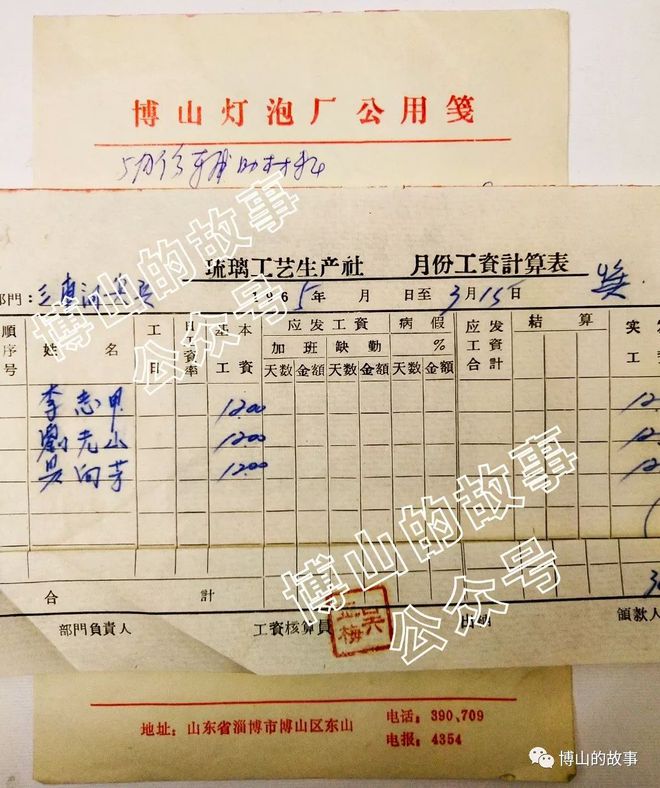 博山灯泡厂公用笺
5月份辅助材料
琉璃工艺生产社 月份工資計算表
部門：
1965年 月 日至3月15日
順序号 姓名 工日 日工資率 基本工資 应发工資 病假% 应发工資合計 結算 实发工
加班 缺勤
天数 金額 天数 金額 天数 金額
李志甲 12.00 12.
劉光山 12.00 12.
吴向芳 12.00 12.
合計 3
部門負責人 工資核算員 出納 領款人
吴 梅
地址：山东省淄博市博山区东山 电话：390、709
电报：4354
博山的故事
公众号
博山的故事
公众号
博山的故事